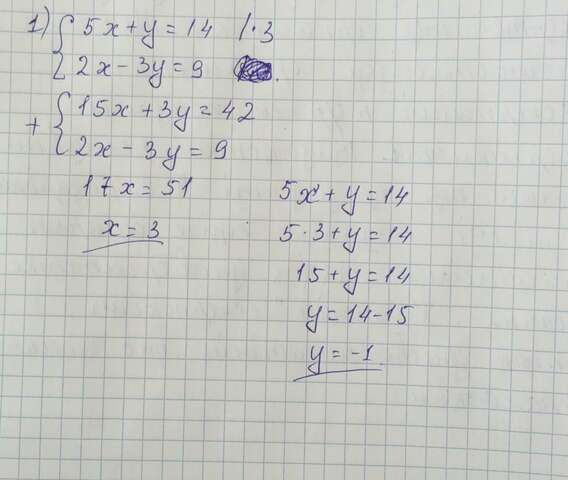 1) { 5x + y = 14 / · 3
{ 2x - 3y = 9
+ { 15x + 3y = 42
{ 2x - 3y = 9
17x = 51
x = 3
5x + y = 14
5 · 3 + y = 14
15 + y = 14
y = 14 - 15
y = -1